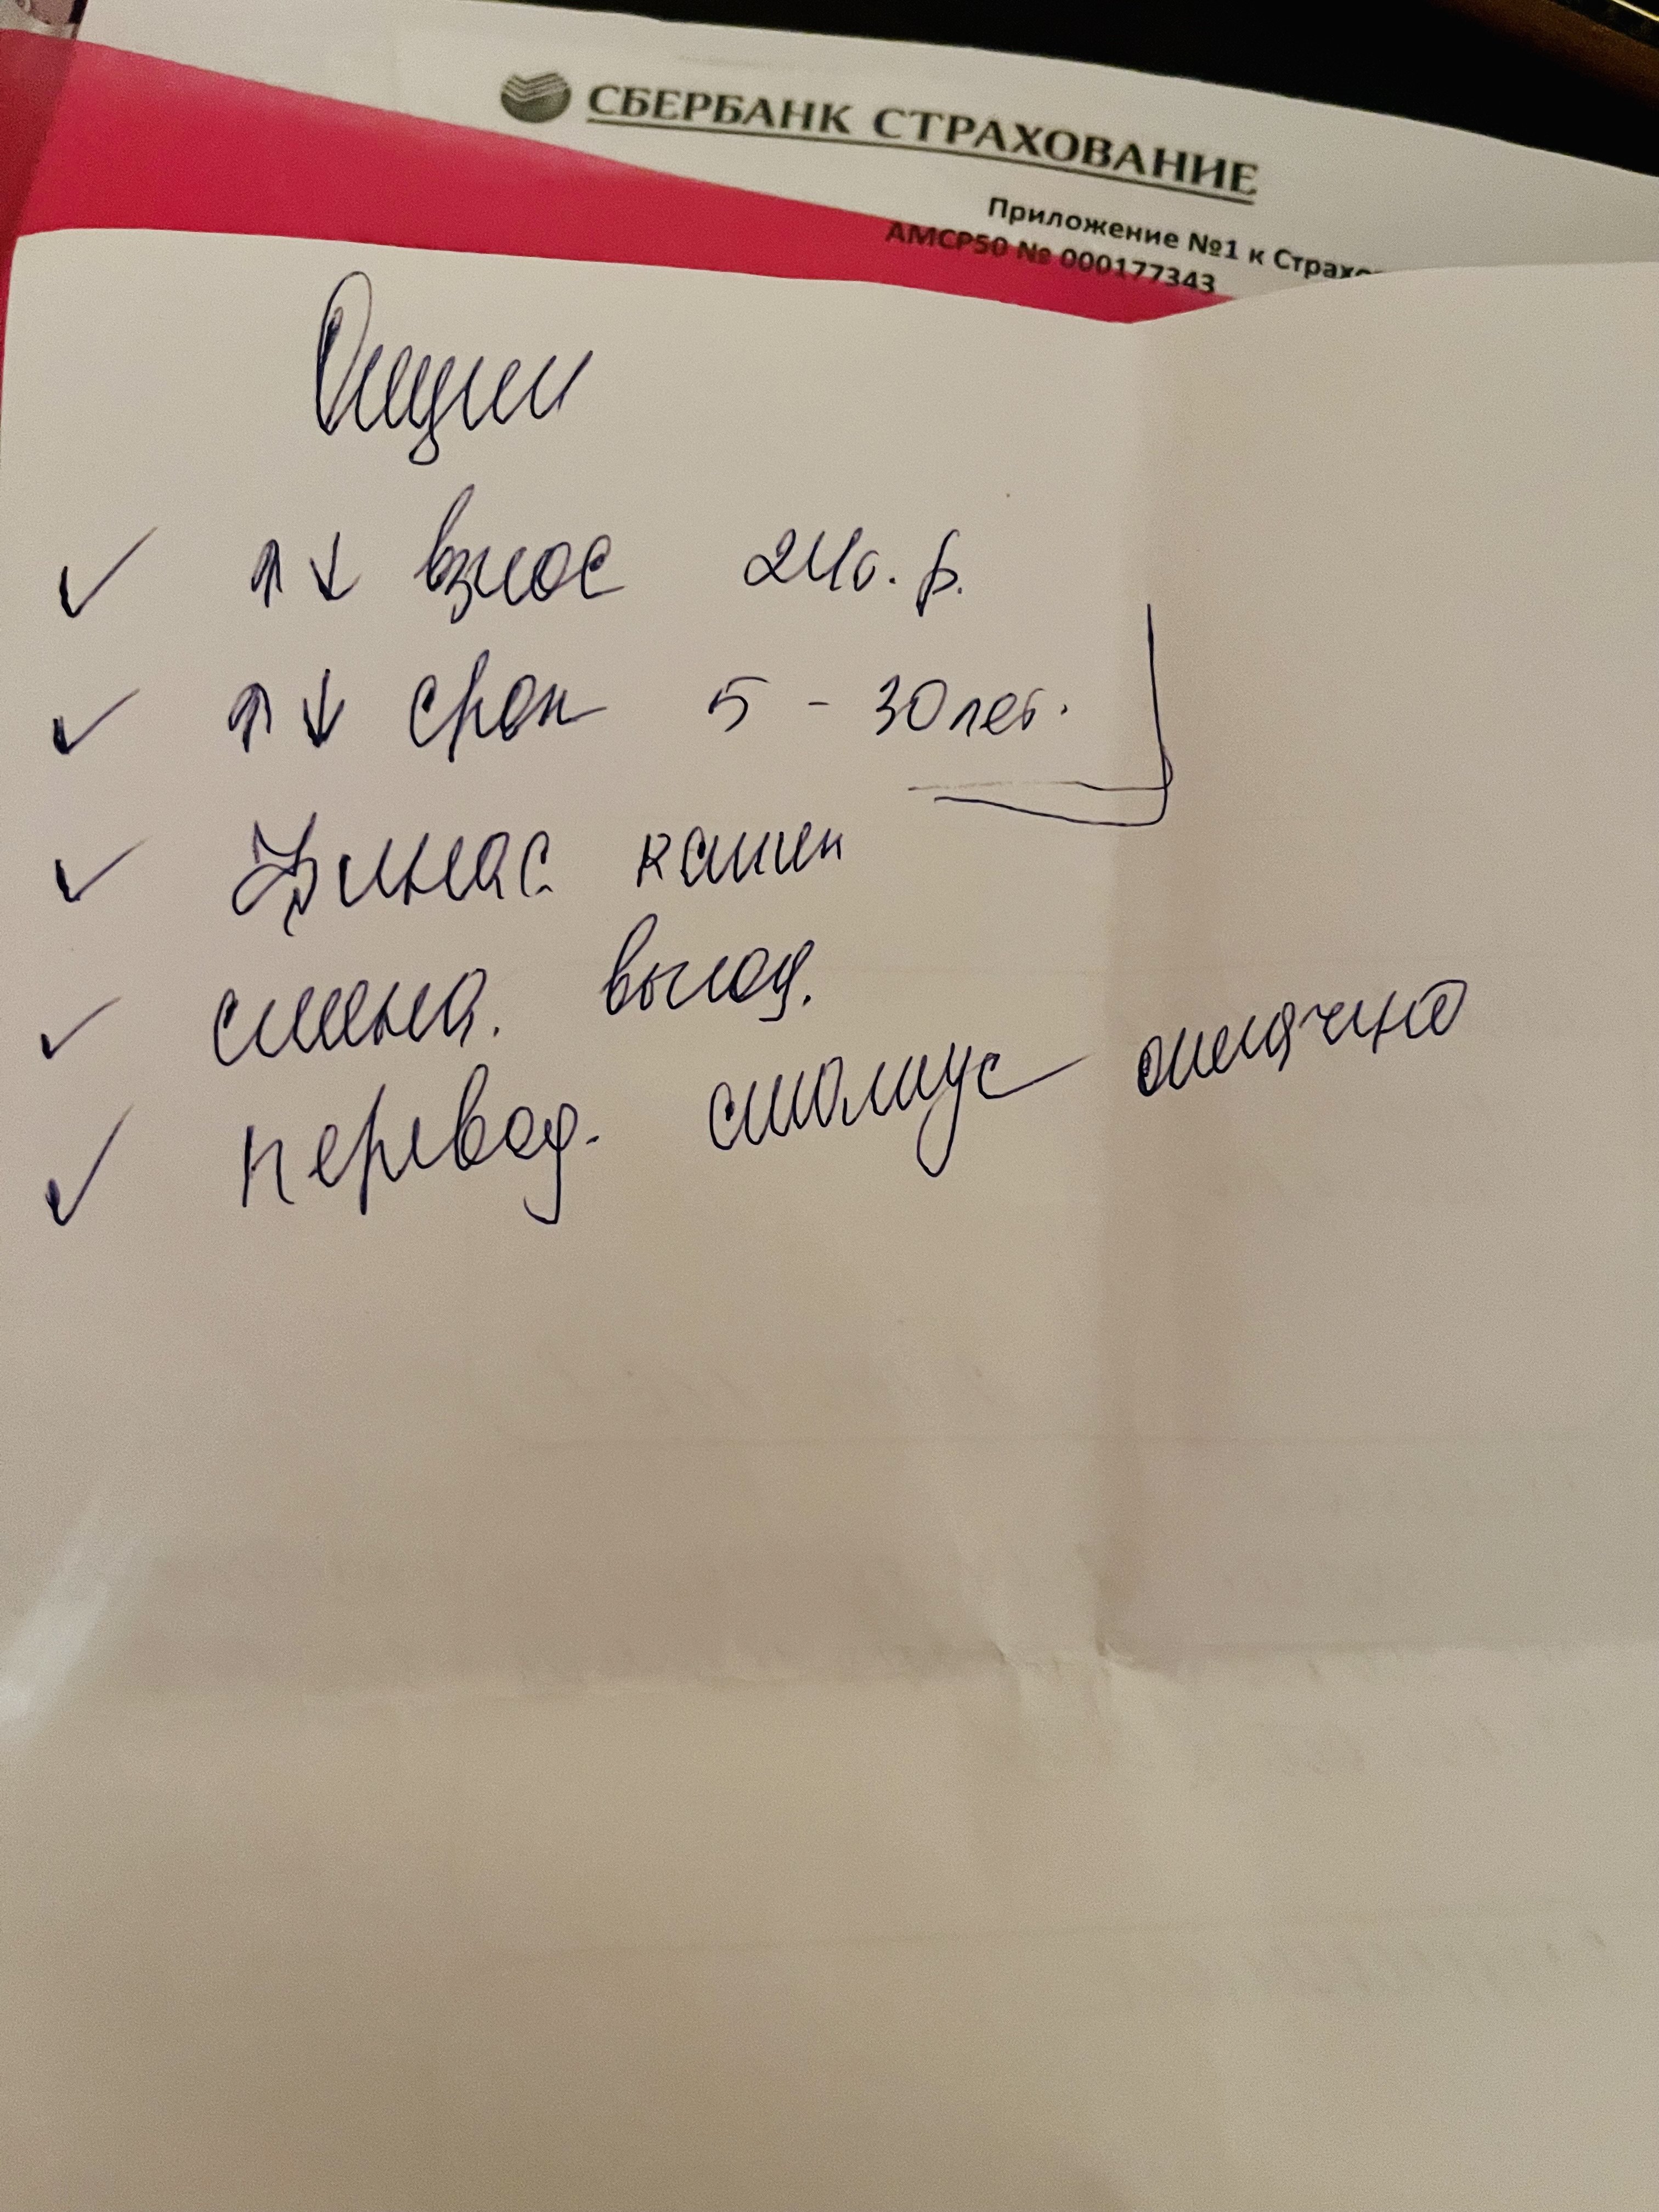 СБЕРБАНК СТРАХОВАНИЕ
Приложение №1 к Страхо
АМСР50 № 000177343
Опции
✓ ↑↓ взнос 24т. р.
✓ ↑↓ срок 5 - 30 лет.
✓ Финанс. каник
✓ смена. выгод.
✓ перевод. статус оплачено